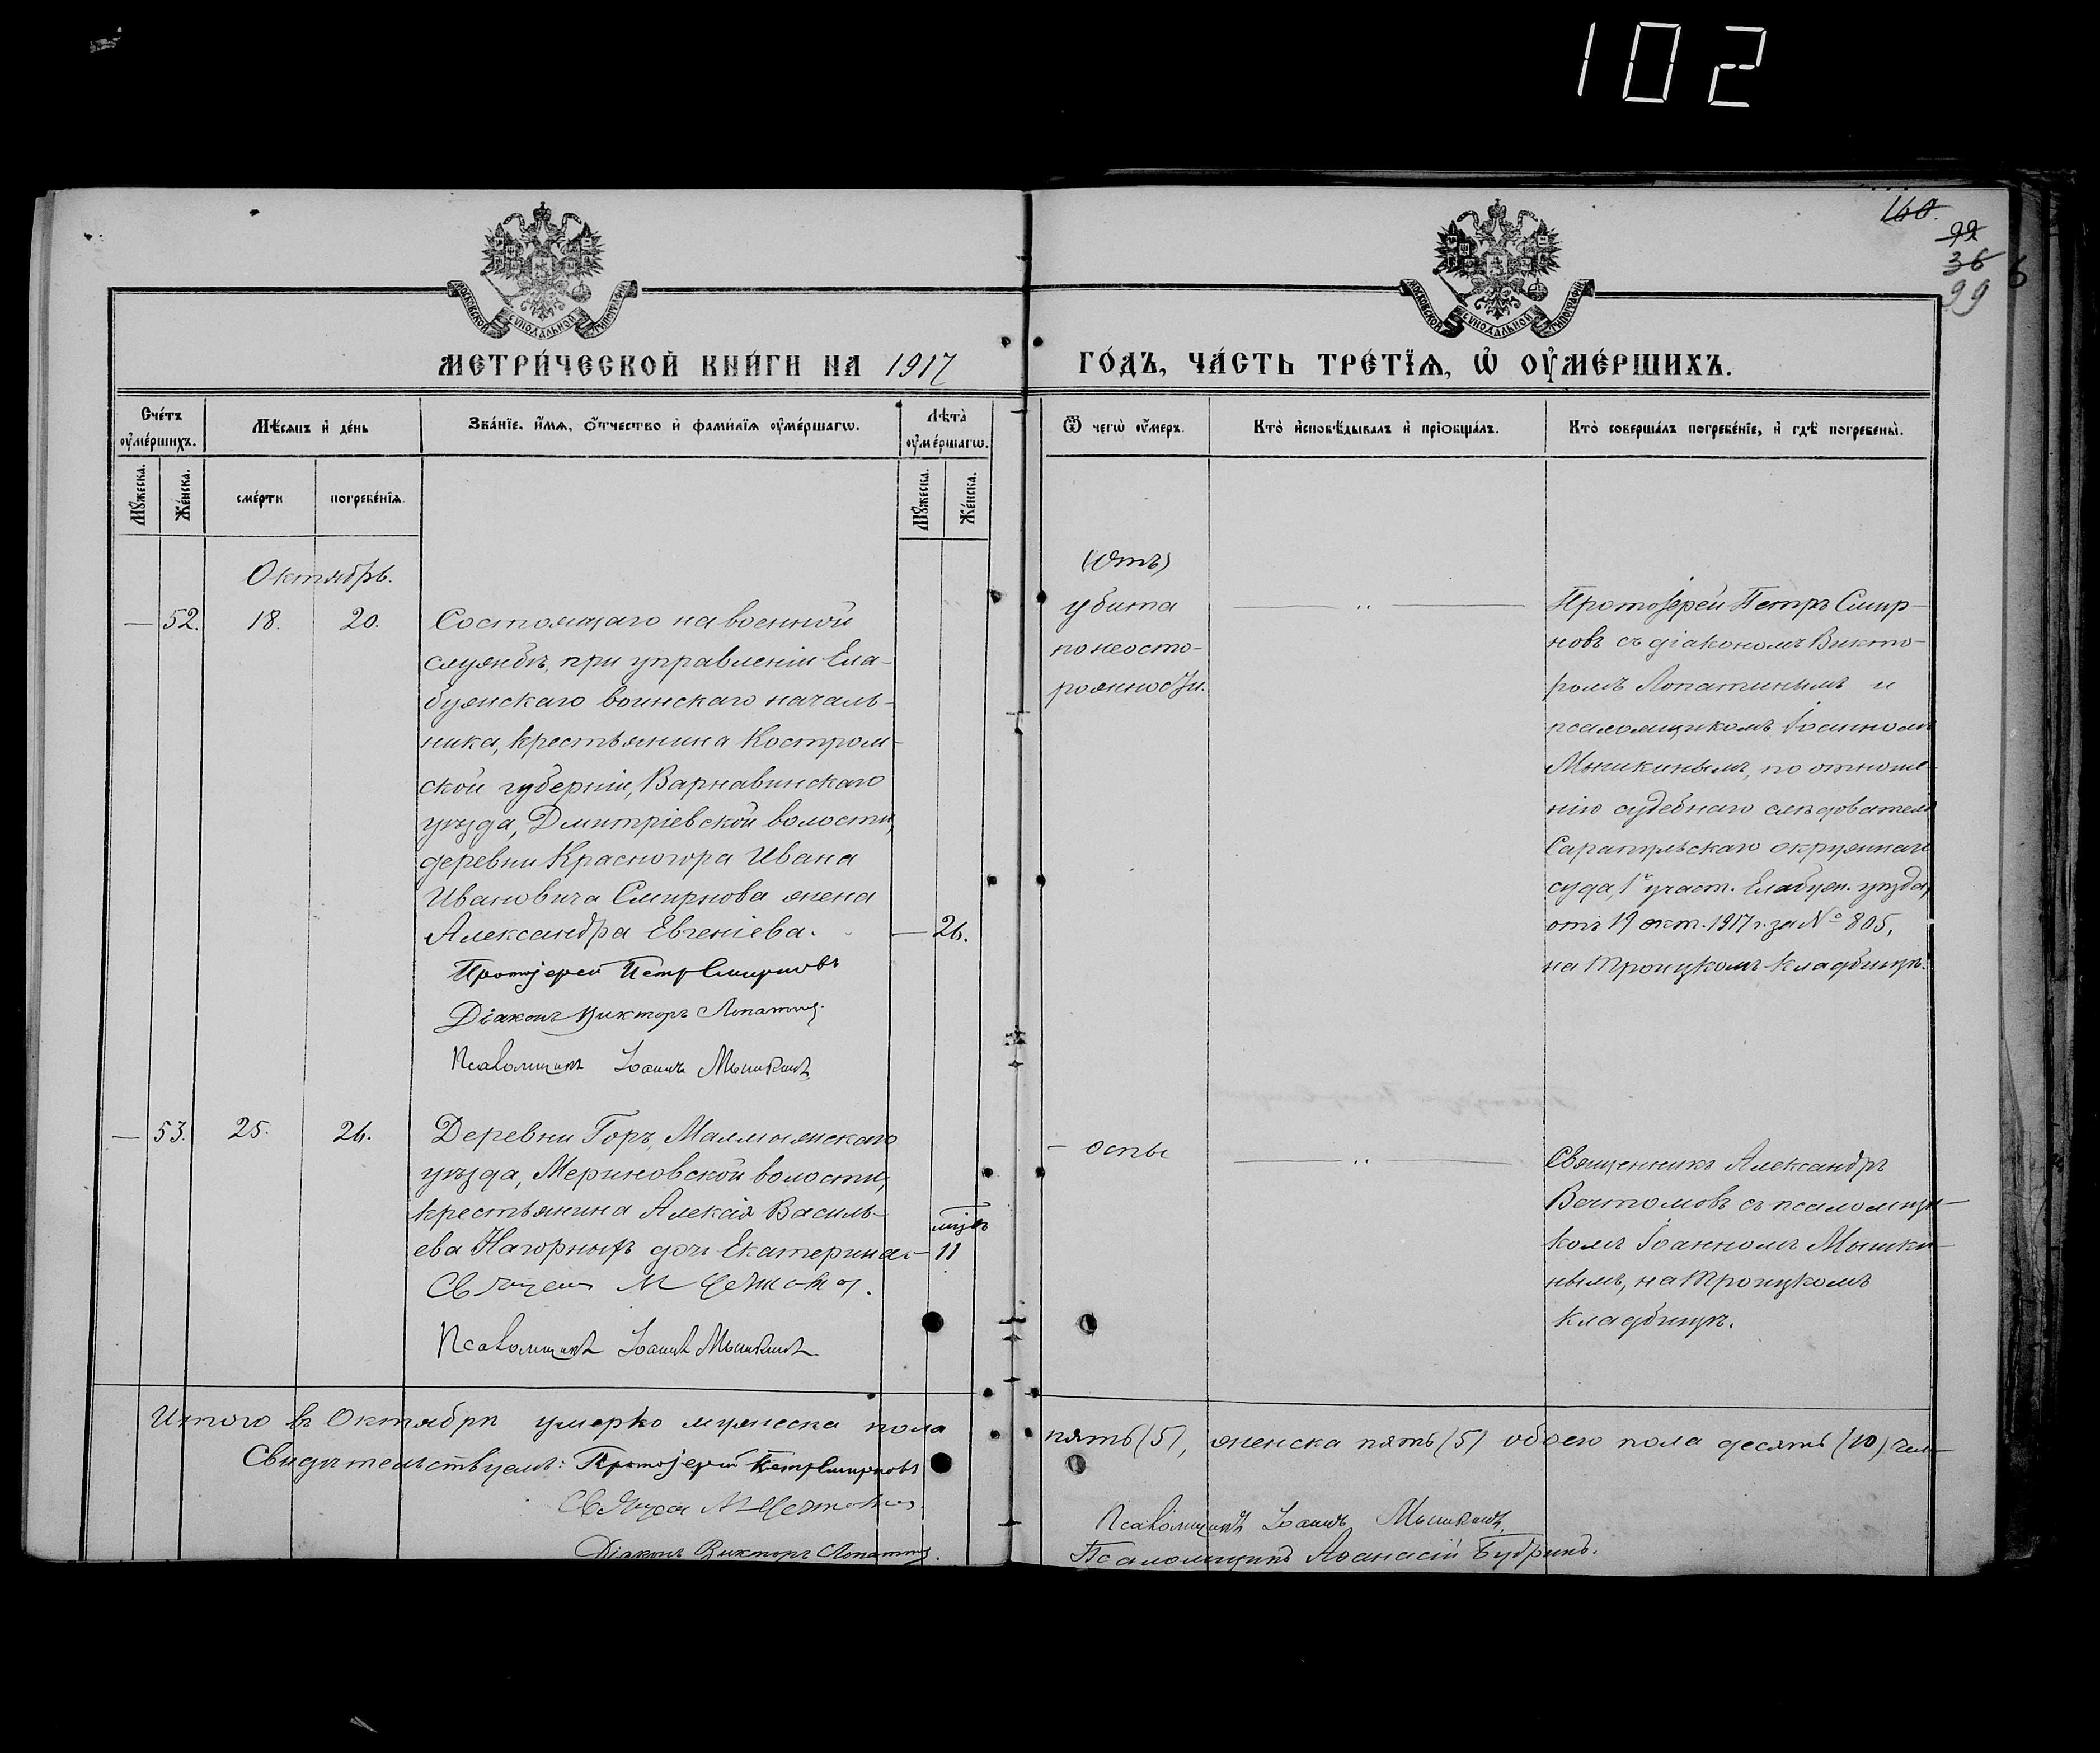 102
160.
99
36
99
6
МОСКОВСКОЙ СѴНОДАЛЬНОЙ ТИПОГРАФІИ
МОСКОВСКОЙ СѴНОДАЛЬНОЙ ТИПОГРАФІИ
МЕТРИ́ЧЕСКОЙ КНИ́ГИ НА 1917
ГО́ДЪ, ЧА́СТЬ ТРЕ́ТЇѦ, Ѡ҆ ОУ҆МЕ́РШИХЪ.
Сче́тъ оу҆ме́ршихъ.
Мѣ́сѧцъ и҆ де́нь
Зва́нїе, и҆́мѧ, ѻ҆́тчество и҆ фами́лїѧ оу҆ме́ршагѡ.
Лѣта̀ оу҆ме́ршагѡ.
Ѿ чегѡ̀ оу҆́меръ.
Кто̀ и҆сповѣ́дывалъ и҆ прїѻбща́лъ.
Кто̀ соверша́лъ погребе́нїе, и҆ гдѣ̀ погребены̀.
Мꙋ́жеска.
Же́нска.
сме́рти
погребе́нїѧ.
Мꙋ́жеска.
Же́нска.
Октябрь.
— 52. 18. 20.
Состоящаго на военной
службѣ, при управленіи Ела-
бужскаго воинскаго началь-
ника, крестьянина Костром-
ской губерніи, Варнавинскаго
уѣзда, Дмитріевской волости,
деревни Красногора Ивана
Ивановича Смирнова жена
Александра Евгеніева. — 26.
Протоіерей Петръ Смирновъ
Діаконъ Викторъ Лопатинъ.
Псаломщикъ Іоаннъ Мышкинъ
(Отъ)
убита
по неосто-
рожности.
— „ —
Протоіерей Петръ Смир-
новъ съ діакономъ Викто-
ромъ Лопатинымъ и
псаломщикомъ Іоанномъ
Мышкинымъ, по отноше-
нію судебнаго слѣдователя
Сарапульскаго окружнаго
суда, 1го участ. Елабуж. уѣзда,
отъ 19 окт. 1917 г. за № 805,
на Троицкомъ кладбищѣ.
— 53. 25. 26.
Деревни Горъ, Малмыжскаго
уѣзда, Мериновской волости,
крестьянина Алексія Василь-
ева Нагорныхъ дочь Екатерина — мѣц. 11
Священ.
Псаломщикъ Іоаннъ Мышкинъ.
— оспы
— „ —
Священникъ Александръ
Вечтомовъ съ псаломщи-
комъ Іоанномъ Мышки-
нымъ, на Троицкомъ
кладбищѣ.
Итого въ Октябрѣ умерло мужеска пола
пять (5), женска пять (5) обоего пола десять (10) чел.
Свидѣтельствуемъ: Протоіерей Петръ Смирновъ
Діаконъ Викторъ Лопатинъ.
Псаломщикъ Іоаннъ Мышкинъ.
Псаломщикъ Аѳанасій Бубринъ.